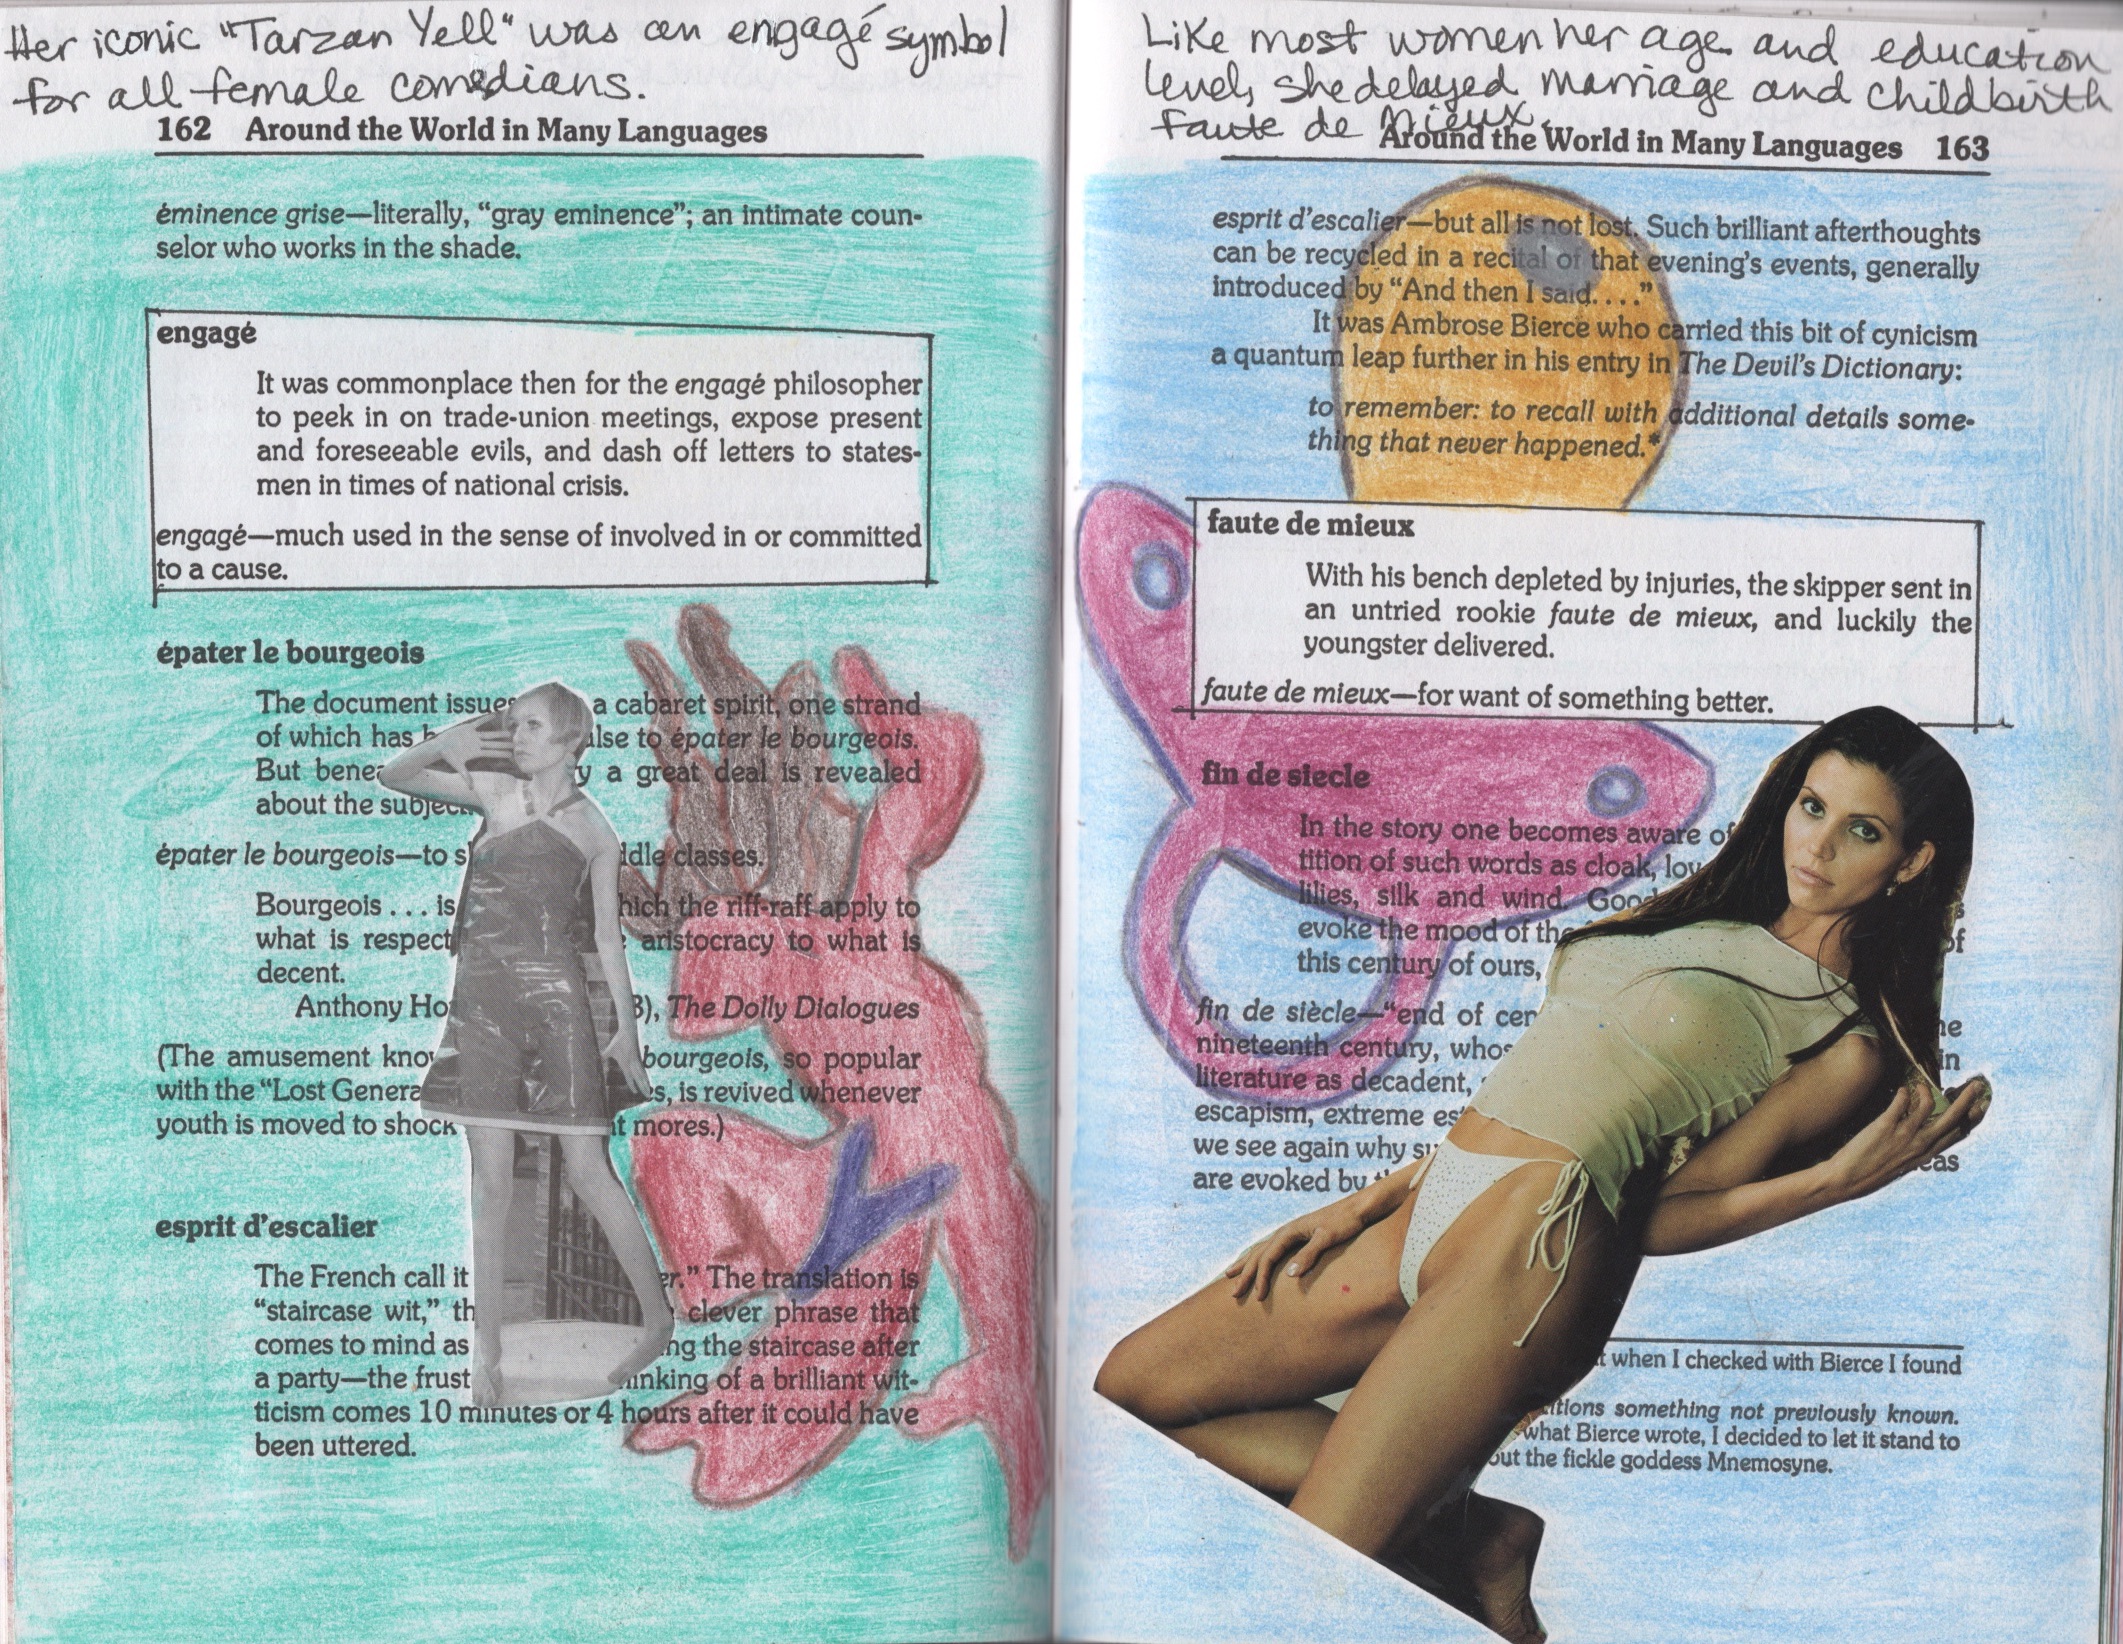 Her iconic "Tarzan Yell" was an engagé symbol
for all female comedians.
162 Around the World in Many Languages
éminence grise—literally, “gray eminence”; an intimate coun-
selor who works in the shade.
engagé
It was commonplace then for the engagé philosopher
to peek in on trade-union meetings, expose present
and foreseeable evils, and dash off letters to states-
men in times of national crisis.
engagé—much used in the sense of involved in or committed
to a cause.
épater le bourgeois
The document issues a cabaret spirit, one strand
of which has to épater le bourgeois.
But a great deal is revealed
about the
épater le bourgeois—to classes.
Bourgeois . . . is the riff-raff apply to
what is aristocracy to what is
decent.
Anthony The Dolly Dialogues
(The amusement bourgeois, so popular
with the “Lost is revived whenever
youth is moved to shock mores.)
esprit d’escalier
The French call it The translation is
“staircase wit,” clever phrase that
comes to mind as the staircase after
a party—the of a brilliant wit-
ticism comes 10 minutes or 4 hours after it could have
been uttered.
Like most women her age and education
level, she delayed marriage and childbirth
faute de mieux.
Around the World in Many Languages 163
esprit d’escalier—but all is not lost. Such brilliant afterthoughts
can be recycled in a recital of that evening’s events, generally
introduced by “And then I said. . . .”
It was Ambrose Bierce who carried this bit of cynicism
a quantum leap further in his entry in The Devil’s Dictionary:
to remember: to recall with additional details some-
thing that never happened.*
faute de mieux
With his bench depleted by injuries, the skipper sent in
an untried rookie faute de mieux, and luckily the
youngster delivered.
faute de mieux—for want of something better.
fin de siecle
In the story one becomes aware of
tition of such words as cloak,
lilies, silk and wind.
evoke the mood of the of
this century of ours,
fin de siècle—“end of
nineteenth century, in
literature as decadent,
escapism, extreme
we see again why
are evoked by
when I checked with Bierce I found
something not previously known.
what Bierce wrote, I decided to let it stand to
the fickle goddess Mnemosyne.